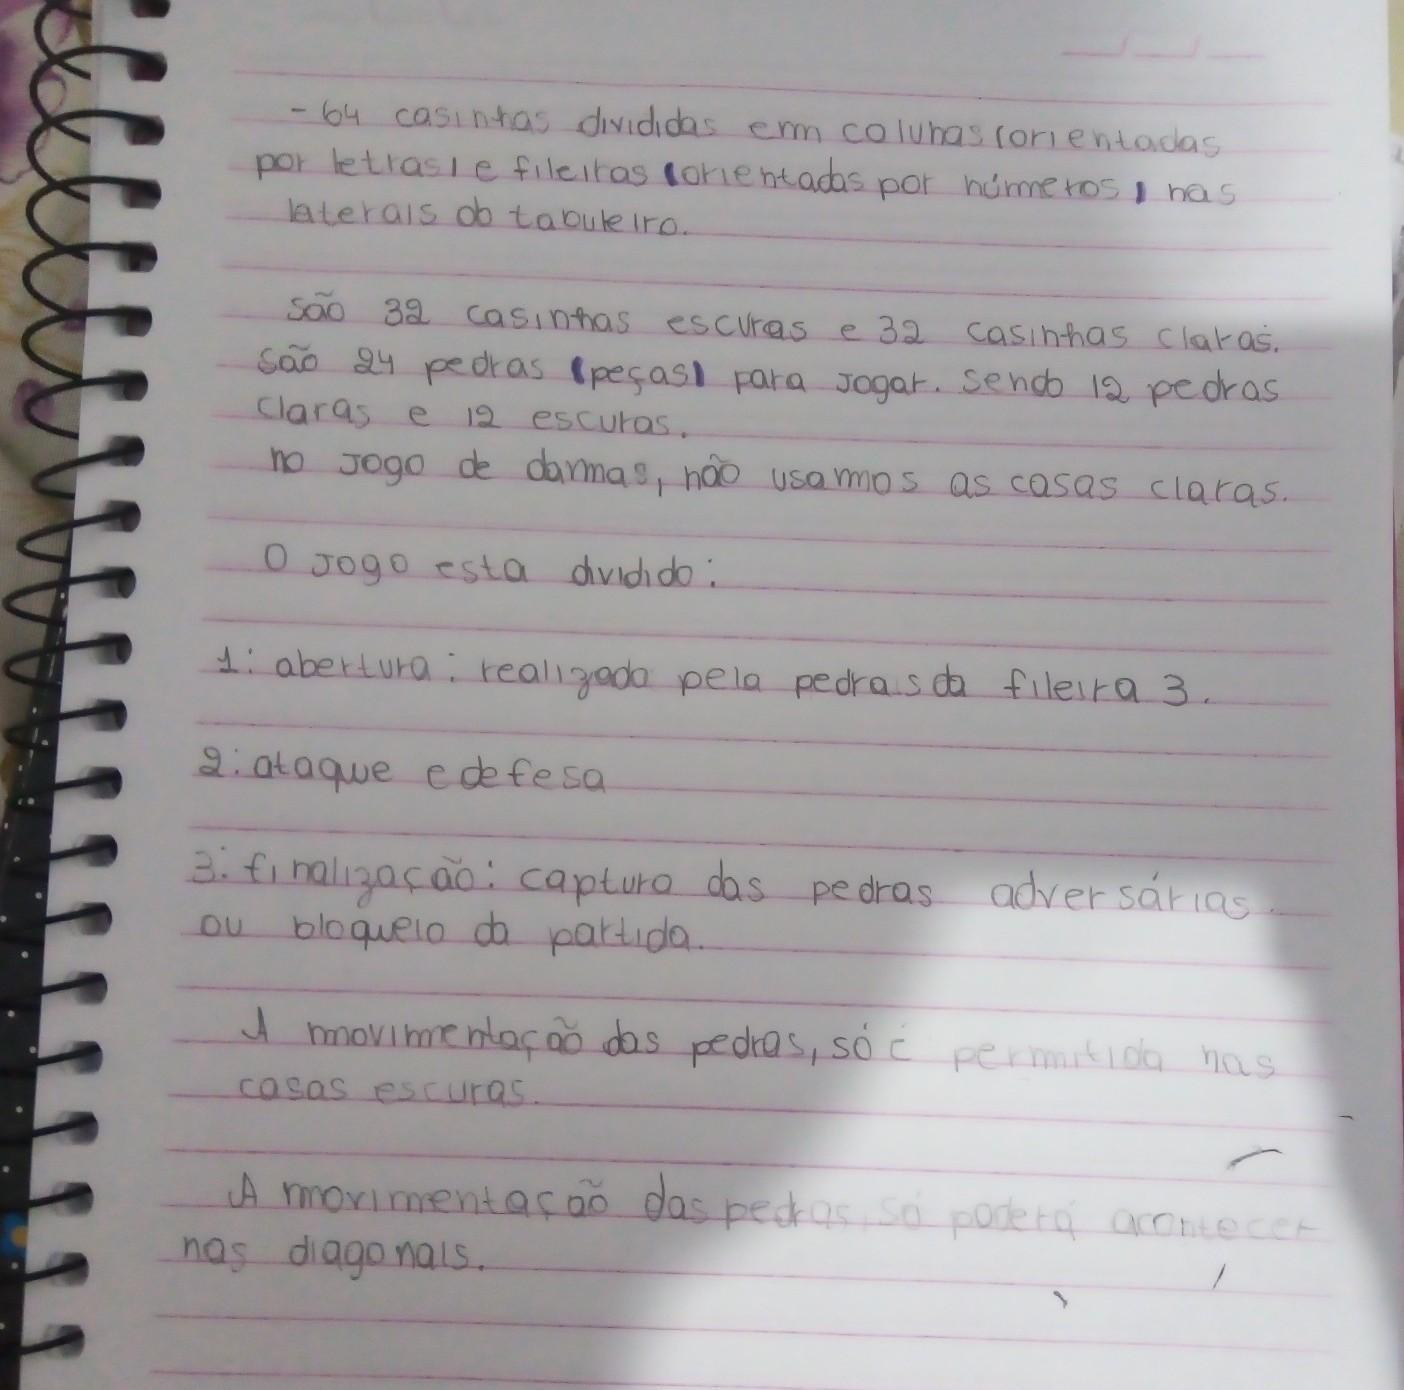 - 64 casinhas divididas em colunas (orientadas
por letras) e fileiras (orientadas por números) nas
laterais do tabuleiro.
são 32 casinhas escuras e 32 casinhas claras.
são 24 pedras (peças) para jogar. sendo 12 pedras
claras e 12 escuras.
no jogo de damas, não usamos as casas claras.
O jogo esta dividido:
1: abertura: realizado pela pedras da fileira 3.
2: ataque e defesa
3: finalização: captura das pedras adversárias
ou bloqueio da partida.
A movimentação das pedras, só é permitida nas
casas escuras.
A movimentação das pedras, só poderá acontecer
nas diagonais.